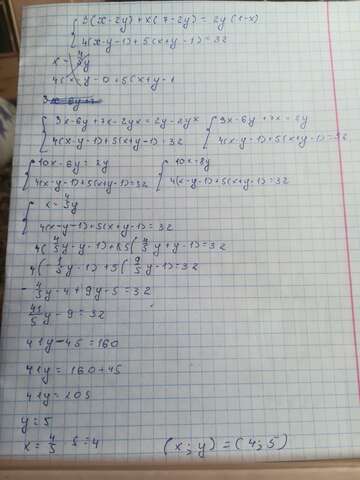 3(x-2y)+x(7-2y)=2y(1-x)
4(x-y-1)+5(x+y-1)=32
x=4/5y
4(x-y-1)+5(x+y-1
3x-6y+7x
3x-6y+7x-2yx=2y-2yx
3x-6y+7x=2y
4(x-y-1)+5(x+y-1)=32
4(x-y-1)+5(x+y-1)=32
10x-6y=2y
10x=8y
4(x-y-1)+5(x+y-1)=32
4(x-y-1)+5(x+y-1)=32
x=4/5y
4(x-y-1)+5(x+y-1)=32
4(4/5y-y-1)+5(4/5y+y-1)=32
4(-1/5y-1)+5(9/5y-1)=32
-4/5y-4+9y-5=32
41/5y-9=32
41y-45=160
41y=160+45
41y=205
y=5
x=4/5·5=4
(x;y)=(4;5)